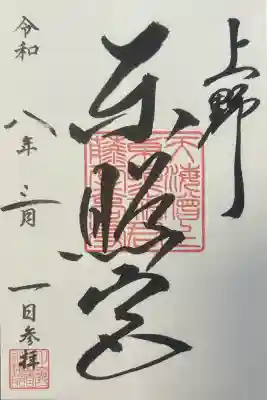 上野
東照宮
令和
八年
二月
一日参拝